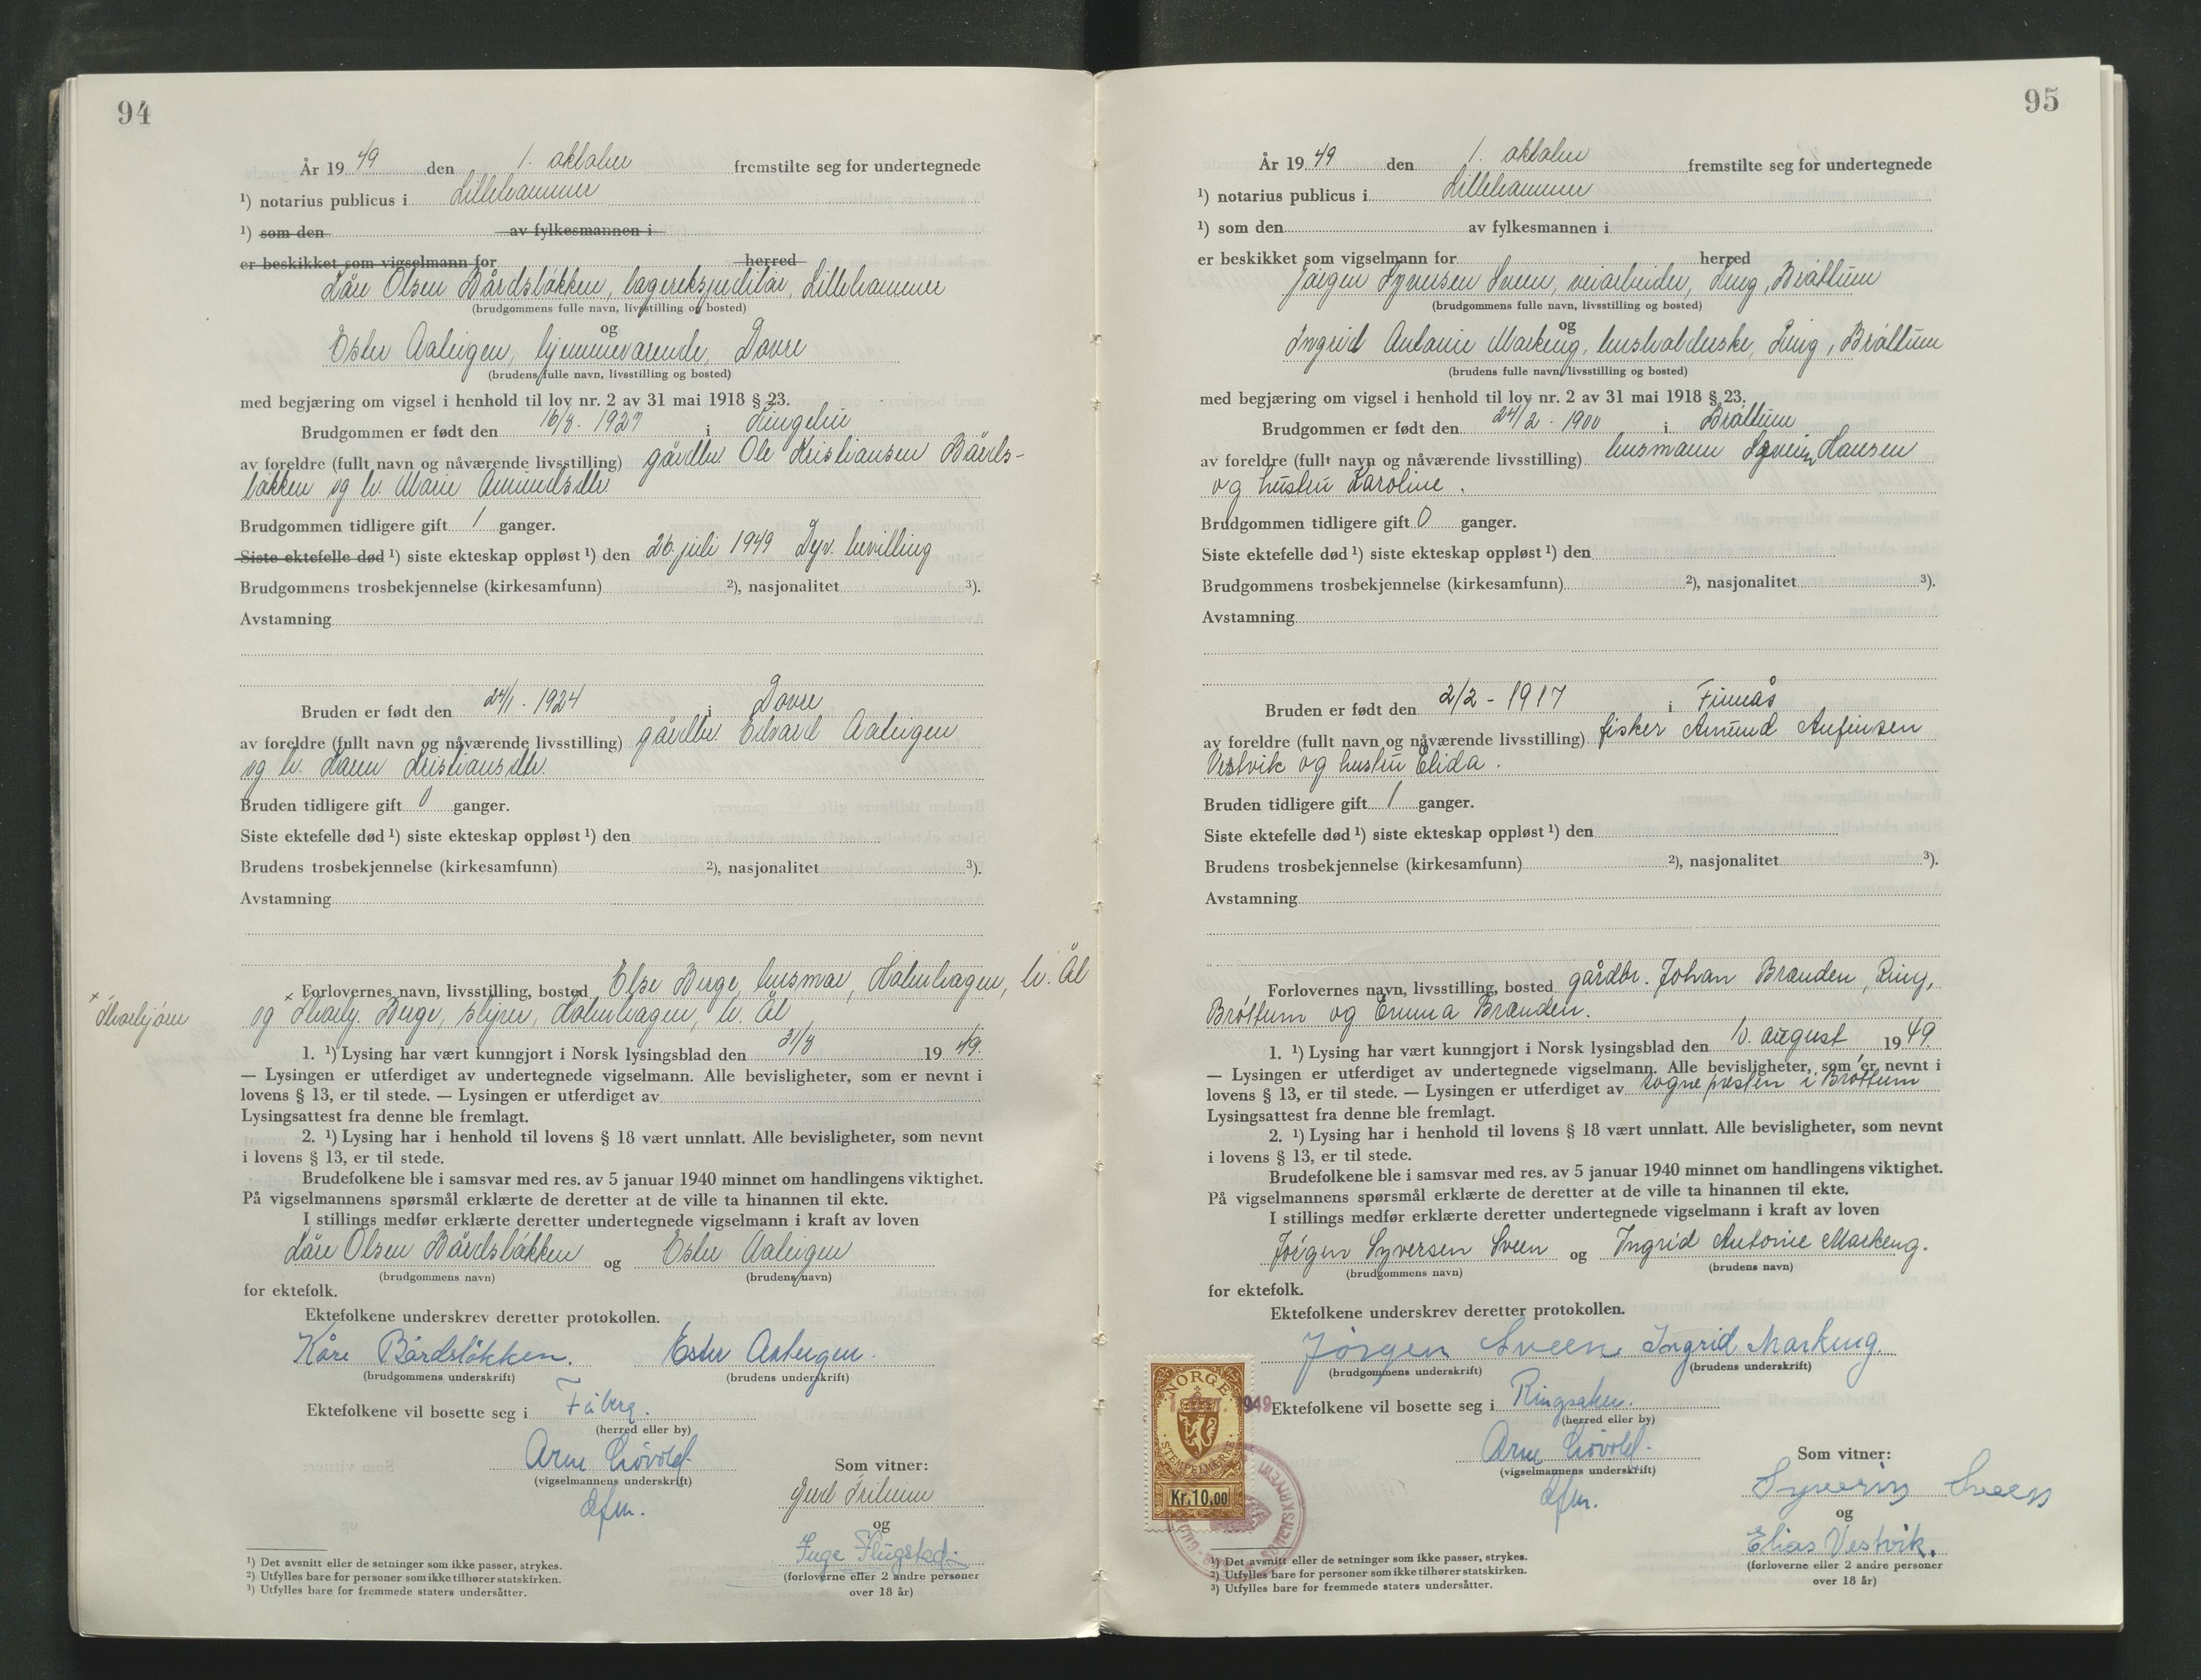 94
År 1949 den 1. oktober fremstilte seg for undertegnede
¹) notarius publicus i Lillehammer
¹) som den av fylkesmannen i
er beskikket som vigselmann for herred
Kåre Olsen Bårdsløkken, lagerekspeditør, Lillehammer
(brudgommens fulle navn, livsstilling og bosted)
og
Ester Aateigen, hjemmeværende, Dovre
(brudens fulle navn, livsstilling og bosted)
med begjæring om vigsel i henhold til lov nr. 2 av 31 mai 1918 § 23.
Brudgommen er født den 16/8. 1927 i Ringebu
av foreldre (fullt navn og nåværende livsstilling) gårdbr. Ole Kristiansen Bårds-
løkken og h. Marie Amundsdtr.
Brudgommen tidligere gift 1 ganger.
Siste ektefelle død ¹) siste ekteskap oppløst ¹) den 26. juli 1949 Dep. bevilling
Brudgommens trosbekjennelse (kirkesamfunn) ²), nasjonalitet ³).
Avstamning
Bruden er født den 24/1. 1924 i Dovre
av foreldre (fullt navn og nåværende livsstilling) gårdbr. Edvard Aateigen
og h. Karen Kristiansdtr.
Bruden tidligere gift 0 ganger.
Siste ektefelle død ¹) siste ekteskap oppløst ¹) den
Brudens trosbekjennelse (kirkesamfunn) ²), nasjonalitet ³).
Avstamning
Forlovernes navn, livsstilling, bosted Else Berge, husmor, Holmhagen, h. Ål
× Thorbjørn
og × Thorbj. Berge, styrer, Holmhagen, h. Ål
1. ¹) Lysing har vært kunngjort i Norsk lysingsblad den 31/8 1949.
— Lysingen er utferdiget av undertegnede vigselmann. Alle bevisligheter, som er nevnt i
lovens § 13, er til stede. — Lysingen er utferdiget av
Lysingsattest fra denne ble fremlagt.
2. ¹) Lysing har i henhold til lovens § 18 vært unnlatt. Alle bevisligheter, som nevnt
i lovens § 13, er til stede.
Brudefolkene ble i samsvar med res. av 5 januar 1940 minnet om handlingens viktighet.
På vigselmannens spørsmål erklærte de deretter at de ville ta hinannen til ekte.
I stillings medfør erklærte deretter undertegnede vigselmann i kraft av loven
Kåre Olsen Bårdsløkken og Ester Aateigen
(brudgommens navn) (brudens navn)
for ektefolk.
Ektefolkene underskrev deretter protokollen.
Kåre Bårdsløkken. Ester Aateigen.
(brudgommens underskrift) (brudens underskrift)
Ektefolkene vil bosette seg i Fåberg.
(herred eller by)
Arne Løvold
(vigselmannens underskrift)
dfm.
Som vitner:
og
Inge Flugstad
(forloverne eller 2 andre personer
over 18 år)
¹) Det avsnitt eller de setninger som ikke passer, strykes.
²) Utfylles bare for personer som ikke tilhører statskirken.
³) Utfylles bare for fremmede staters undersåtter.
95
År 1949 den 1. oktober fremstilte seg for undertegnede
¹) notarius publicus i Lillehammer
¹) som den av fylkesmannen i
er beskikket som vigselmann for herred
Jørgen Syversen Sveen, veiarbeider, Ring, Brøttum
(brudgommens fulle navn, livsstilling og bosted)
og
Ingrid Antonie Markeng, husholderske, Ring, Brøttum
(brudens fulle navn, livsstilling og bosted)
med begjæring om vigsel i henhold til lov nr. 2 av 31 mai 1918 § 23.
Brudgommen er født den 24/2. 1900 i Brøttum
av foreldre (fullt navn og nåværende livsstilling) husmann Syverin Hansen
og hustru Karoline.
Brudgommen tidligere gift 0 ganger.
Siste ektefelle død ¹) siste ekteskap oppløst ¹) den
Brudgommens trosbekjennelse (kirkesamfunn) ²), nasjonalitet ³).
Avstamning
Bruden er født den 2/2 - 1917 i Finnås
av foreldre (fullt navn og nåværende livsstilling) fisker Amund Anfinsen
Vestvik og hustru Elida.
Bruden tidligere gift 1 ganger.
Siste ektefelle død ¹) siste ekteskap oppløst ¹) den
Brudens trosbekjennelse (kirkesamfunn) ²), nasjonalitet ³).
Avstamning
Forlovernes navn, livsstilling, bosted gårdbr. Johan Brænden, Ring,
Brøttum og Emma Brænden.
1. ¹) Lysing har vært kunngjort i Norsk lysingsblad den 10. august 1949.
— Lysingen er utferdiget av undertegnede vigselmann. Alle bevisligheter, som er nevnt i
lovens § 13, er til stede. — Lysingen er utferdiget av sognepresten i Brøttum
Lysingsattest fra denne ble fremlagt.
2. ¹) Lysing har i henhold til lovens § 18 vært unnlatt. Alle bevisligheter, som nevnt
i lovens § 13, er til stede.
Brudefolkene ble i samsvar med res. av 5 januar 1940 minnet om handlingens viktighet.
På vigselmannens spørsmål erklærte de deretter at de ville ta hinannen til ekte.
I stillings medfør erklærte deretter undertegnede vigselmann i kraft av loven
Jørgen Syversen Sveen og Ingrid Antonie Markeng.
(brudgommens navn) (brudens navn)
for ektefolk.
Ektefolkene underskrev deretter protokollen.
Jørgen Sveen Ingrid Markeng.
(brudgommens underskrift) (brudens underskrift)
NORGE
STEMPELMERKE
Kr. 10.00
949
Ektefolkene vil bosette seg i Ringsaker.
(herred eller by)
Arne Løvold
(vigselmannens underskrift)
dfm.
Som vitner:
Syverin Sveen
og
Elias Vestvik.
(forloverne eller 2 andre personer
over 18 år)
¹) Det avsnitt eller de setninger som ikke passer, strykes.
²) Utfylles bare for personer som ikke tilhører statskirken.
³) Utfylles bare for fremmede staters undersåtter.